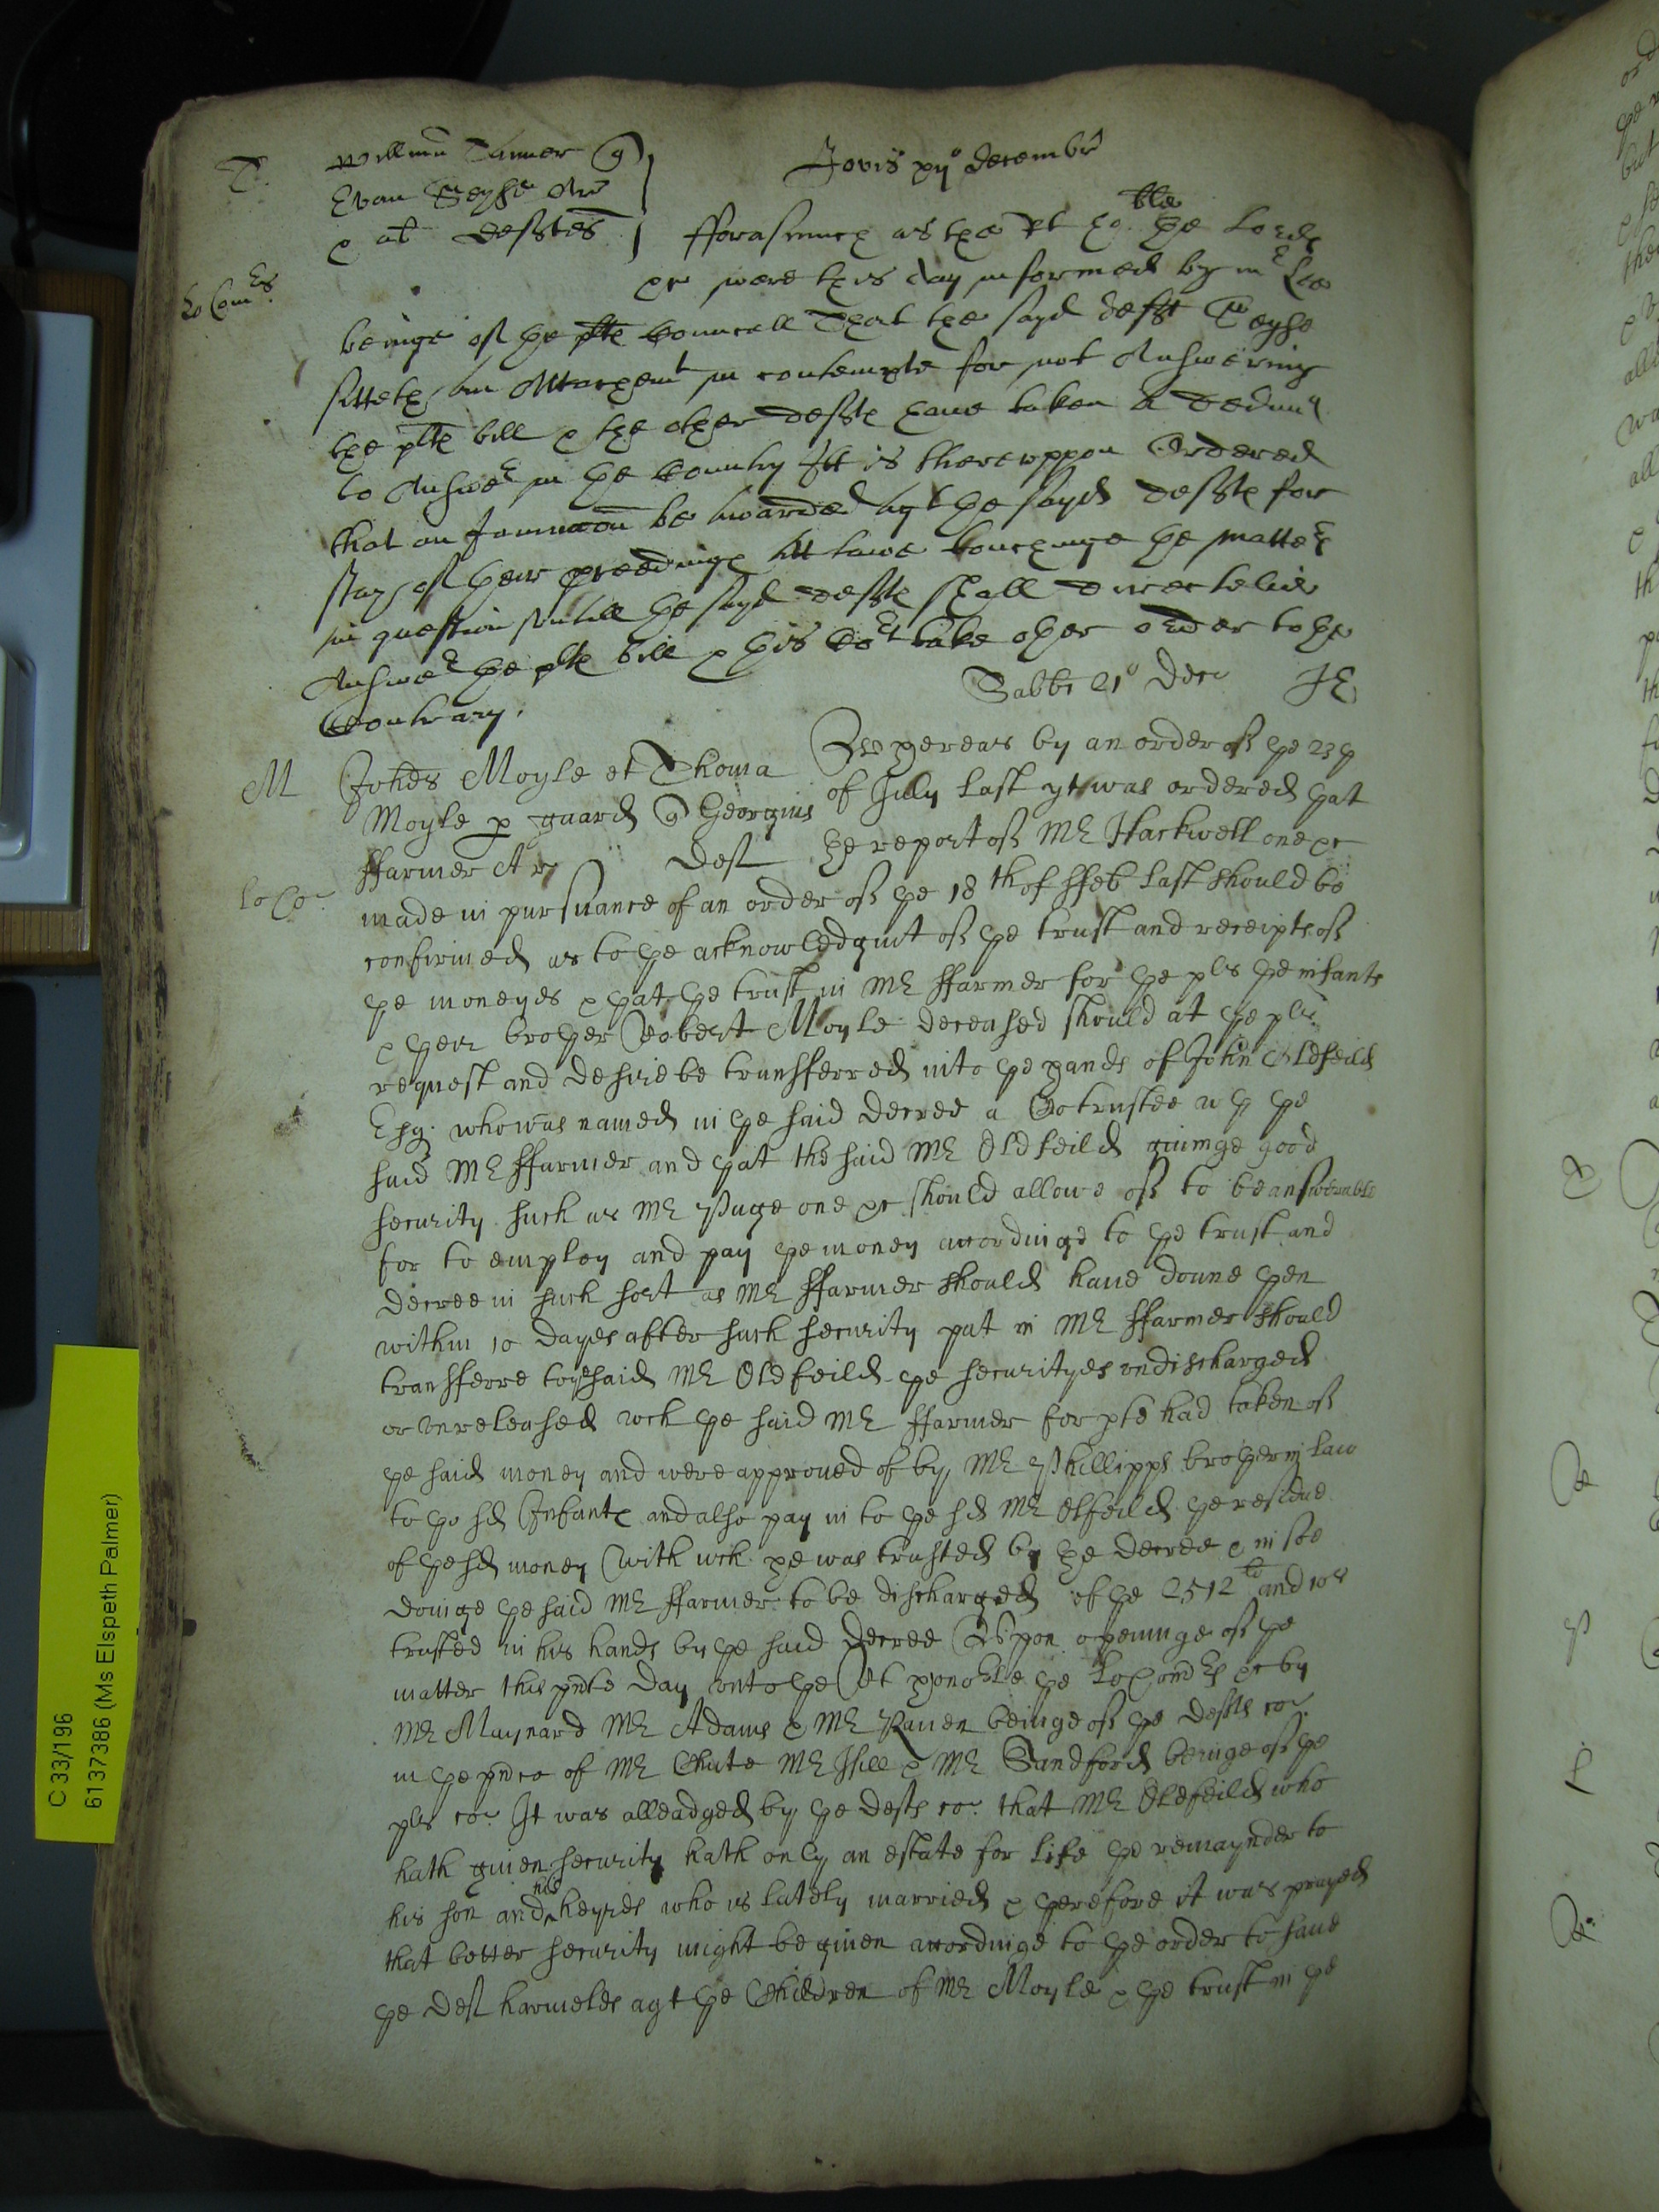 T. Willmu Turner q
Evan Seyse Ar
& al Defftes
Jovis xij° Decembr
Lo Comrs.
fforasmuch as the Rt ho:ble ye Lords
&c were this day informed by mr Lea
beinge of ye plts Councell That the sayd defft Seyse
sitteth an Attachemt in contempte for not Answering
the plts bill & the other deffts have taken a Dedimus
to Answer in ye Country Itt is thereuppon Ordered
that an Iniunccon be awarded agt ye sayd deffts for
stay of their proceedings att lawe concerninge ye matter
in question untill ye sayd deffts shall directelie
Answer ye plts bill & this Cort take other order to ye
Contrary.
Sabbi 21° Dec JE
M
Johes Moyle et Thoma
Moyle p guard q Georgius
ffarmer Ar Deft
Lo Co
Whereas by an order of ye 23th
of July last yt was ordered that
ye report of Mr Hackwell one &c
made in pursuance of an order of ye 18th of ffeb last should be
confirmed as to ye acknowledgmt of ye trust and receipts of
ye moneyes & that ye trust in Mr ffarmer for ye pls ye infants
& their brother Robert Moyle deceased should at ye pls
request and desire be transferred into ye hands of John Oldfeild
Esq. who was named in ye said Decree a Cotrustee wth ye
said Mr ffarmer and that the said Mr Oldfeild giuinge good
security such as Mr Page one &c should allowe of to be answerable
for to employ and pay ye money accordinge to ye trust and
decree in such sort as Mr ffarmer should haue donne then
within 10 dayes after such security put in Mr ffarmer should
transferre to ye said Mr Oldfeild ye securityes vndischarged
or vnreleased wch ye said Mr ffarmer for pte had taken of
ye said money and were approued of by Mr Phillipps brother in law
to ye sd Infants and also pay in to ye sd Mr Olfeild ye residue
of ye sd money with wch he was trusted by ye decree & in soe
doinge ye said Mr ffarmer to be discharged of ye 2512li and 10s
trusted in his hands by ye said Decree Vpon openinge of ye
matter this pnte day vnto ye Rt honoble ye Lo Comrs &c by
Mr Maynard Mr Adams & Mr Rauen beinge of ye defts co.
in ye pnce of Mr Chute Mr Hill & Mr Sandford beinge of ye
pls co. It was alleadged by ye defts co. that Mr Oldfeild who
hath giuen security hath only an estate for life ye remaynder to
his son and his heyres who is lately married & therefore it was prayed
that better security might be giuen accordinge to ye order to saue
ye deft harmeles agt ye Children of Mr Moyle & ye trust in ye
C 33/196
6137386 (Ms Elspeth Palmer)